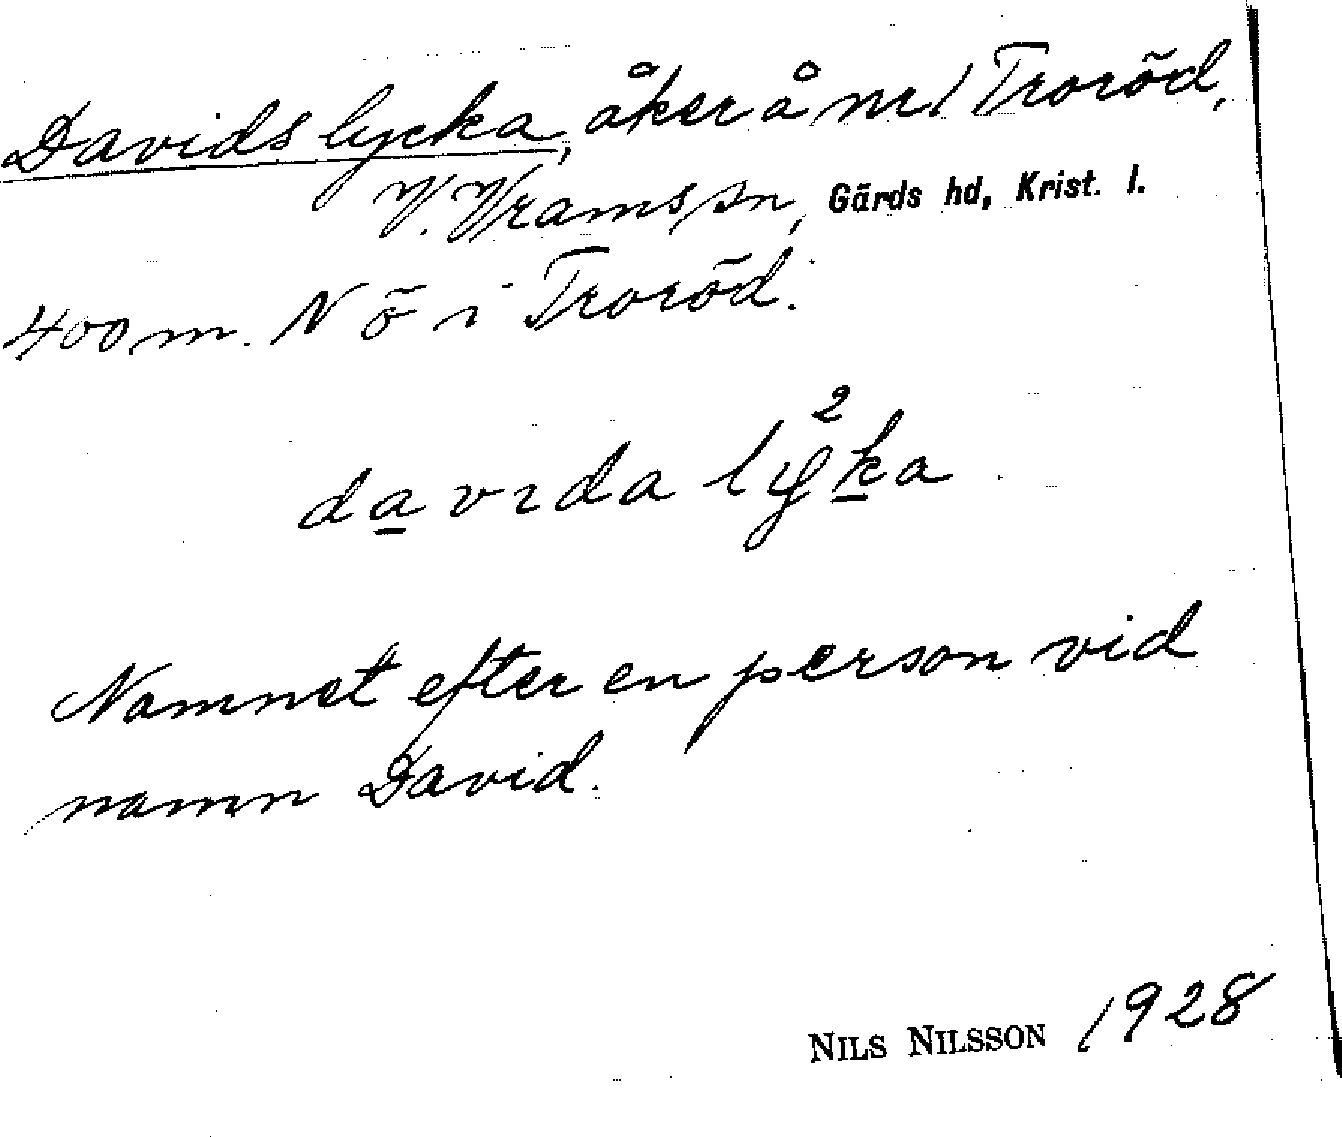 Davids lycka, åker å nr 1 Troröd,
V. Vrams sn, Gärds hd, Krist. l.
400 m. N ö i Troröd.
davida lyka
2
Namnet efter en person vid
namn David.
NILS NILSSON 1928